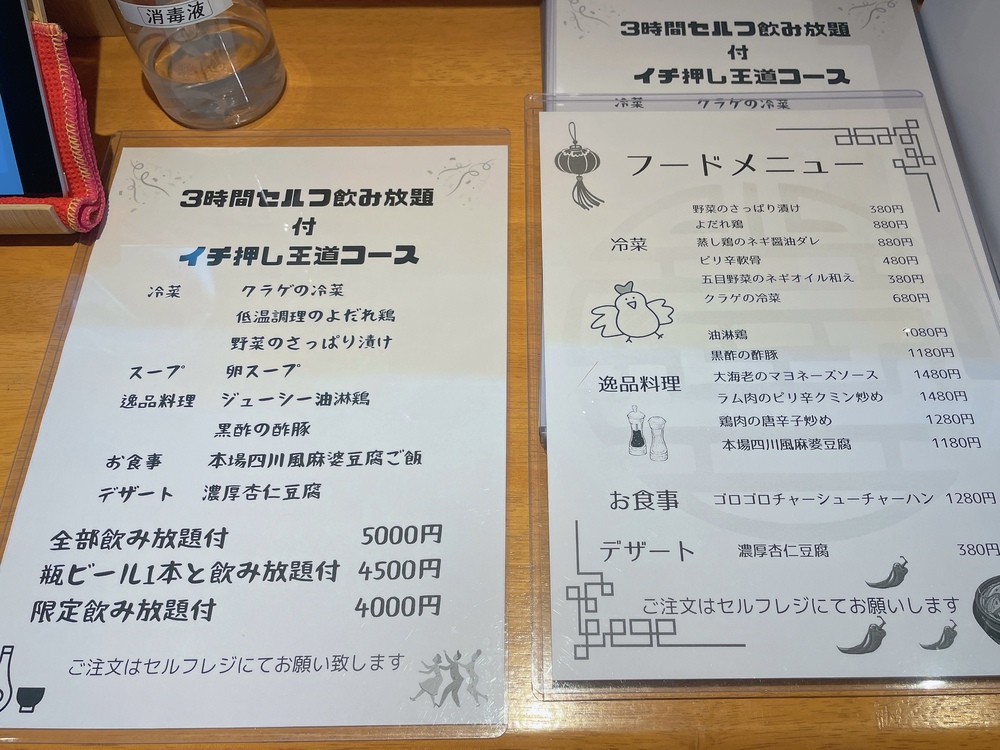 消毒液
3時間セルフ飲み放題
付
イチ押し王道コース
冷菜 クラゲの冷菜
低温調理のよだれ鶏
野菜のさっぱり漬け
スープ 卵スープ
逸品料理 ジューシー油淋鶏
黒酢の酢豚
お食事 本場四川風麻婆豆腐ご飯
デザート 濃厚杏仁豆腐
全部飲み放題付 5000円
瓶ビール1本と飲み放題付 4500円
限定飲み放題付 4000円
ご注文はセルフレジにてお願い致します
3時間セルフ飲み放題
付
イチ押し王道コース
冷菜 クラゲの冷菜
フードメニュー
野菜のさっぱり漬け 380円
よだれ鶏 880円
冷菜 蒸し鶏のネギ醤油ダレ 880円
ピリ辛軟骨 480円
五目野菜のネギオイル和え 380円
クラゲの冷菜 680円
油淋鶏 1080円
黒酢の酢豚 1180円
逸品料理 大海老のマヨネーズソース 1480円
ラム肉のピリ辛クミン炒め 1480円
鶏肉の唐辛子炒め 1280円
本場四川風麻婆豆腐 1180円
お食事 ゴロゴロチャーシューチャーハン 1280円
デザート 濃厚杏仁豆腐 380円
ご注文はセルフレジにてお願いします